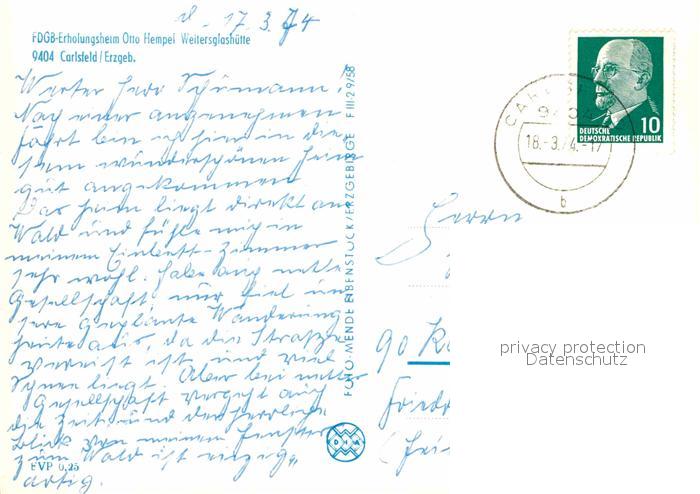 d. 17.3.74
FDGB-Erholungsheim Otto Hempel Weitersglashütte
9404 Carlsfeld/Erzgeb.
Werter Herr Schürmann.
Nach einer angenehmen
Fahrt bin ich hier in die
sem wunderschönen Heim
gut angekommen
Das Heim liegt direkt am
Wald und fühle mich in
meinem Einbett-Zimmer
sehr wohl. Habe eine nette
Gesellschaft nur fiel un
sere geplante Wanderung
heute aus, da die Straße
vereist ist und viel
Schnee liegt. Aber bei netter
Gesellschaft vergeht auch
die Zeit und der herrliche
Blick von meinem Fenster
zum Wald ist einzig
artig.
EVP 0,25
FOTO-MENDE EIBENSTOCK/ERZGEBIRGE F III/29/58
DEUTSCHE
DEMOKRATISCHE REPUBLIK
10
9404
18.-3.74.-17
b
Herrn
90 K
Friedr
(Frei-
privacy protection
Datenschutz